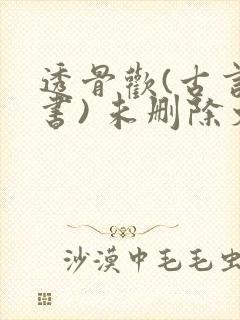 透骨歡(古言
書)未删除
沙漠中毛毛虫